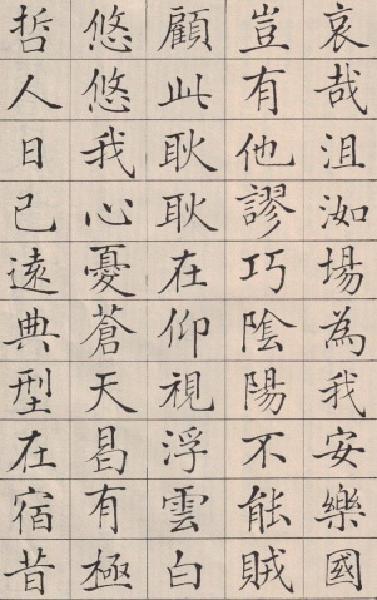 哀哉沮洳場為我安樂國
豈有他謬巧陰陽不能賊
顧此耿耿在仰視浮雲白
悠悠我心憂蒼天曷有極
哲人日已遠典型在宿昔